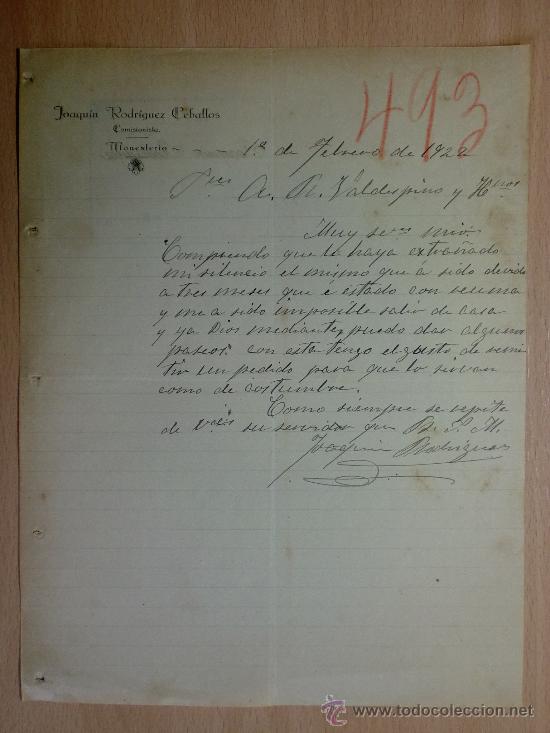 493
Joaquín Rodríguez Ceballos
Comisionista
Monesterio
1º de Febrero de 1922
Sres A. R. Valdespino y Hnos
Muy sres mios.
Comprendo que le haya extrañado
mi silencio el mismo que a sido devido
a tres meses que é estado con reuma
y me a sido imposible salir de casa
y ya Dios mediante, puedo dar algunos
paseos. con esta tengo el gusto de remi-
tir un pedido para que lo sirvan
como de costumbre.
Como siempre se repite
de Vdes su servidor que B. S. M.
Joaquin Rodriguez
todocoleccion
www.todocoleccion.net